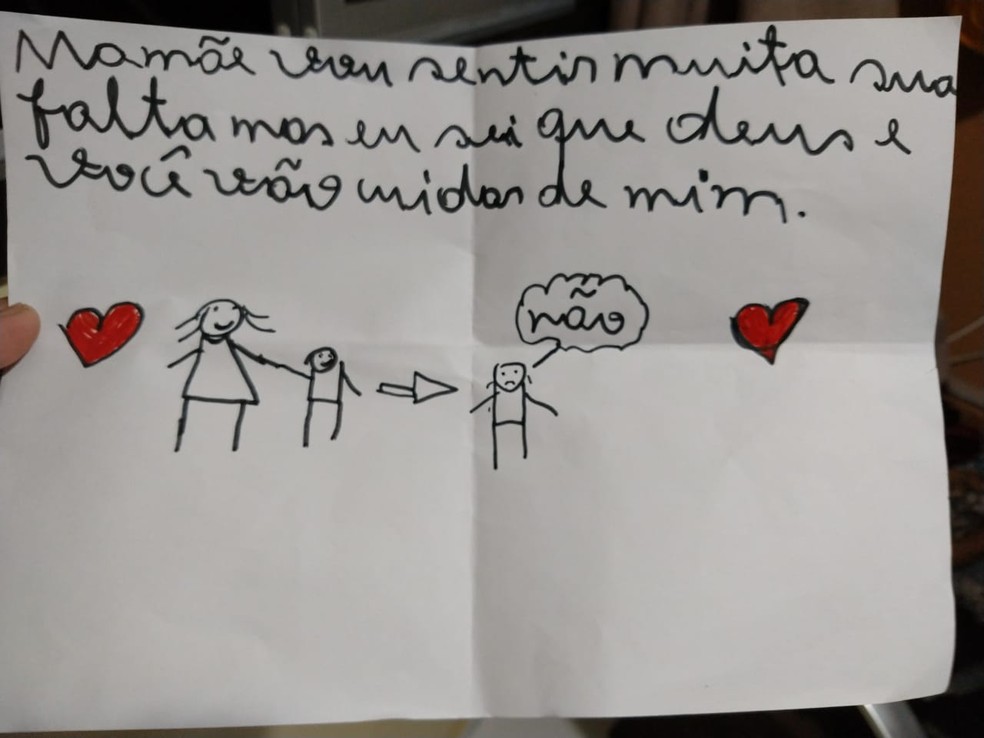 Mamãe vou sentir muita sua
falta mas eu sei que deus e
você vão cuidar de mim.
não